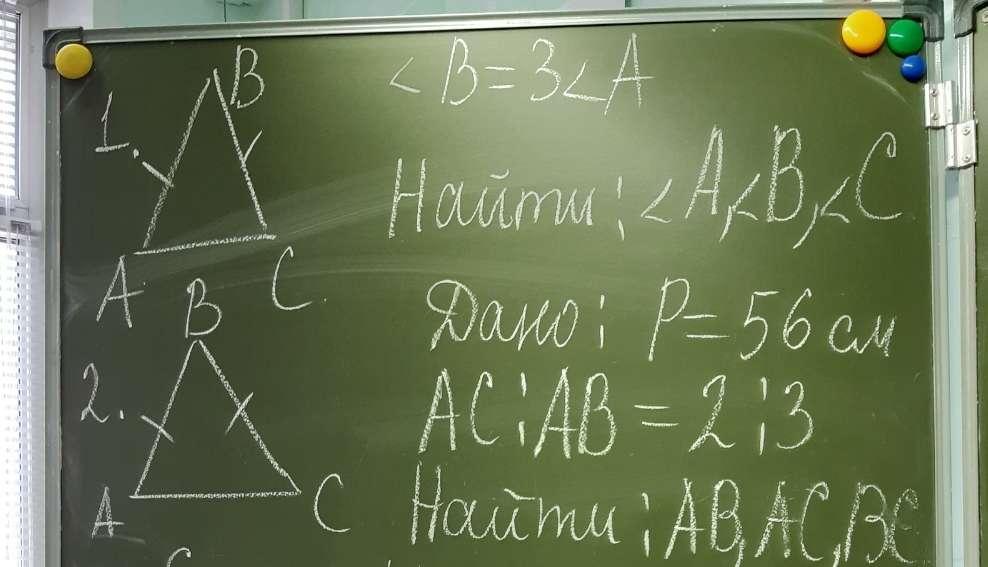 1.
B
A
C
<B=3<A
Найти: <A,<B,<C
2.
B
A
C
Дано: P=56 см
AC:AB=2:3
Найти: AB,AC,BC